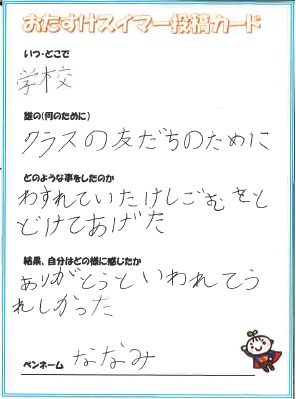 おたすけスイマー投稿カード
いつ・どこで
学校
誰の(何のために)
クラスの友だちのために
どのような事をしたのか
わすれていたけしごむをと
どけてあげた
結果、自分はどの様に感じたか
ありがとうといわれてう
れしかった
ペンネーム ななみ